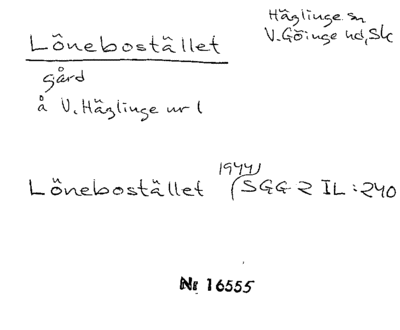 Häglinge sn
V. Göinge hd, Sk
Lönebostället
gård
å V. Häglinge nr 1
1944
Lönebostället (SGG 2 IL:240
Nr 16555